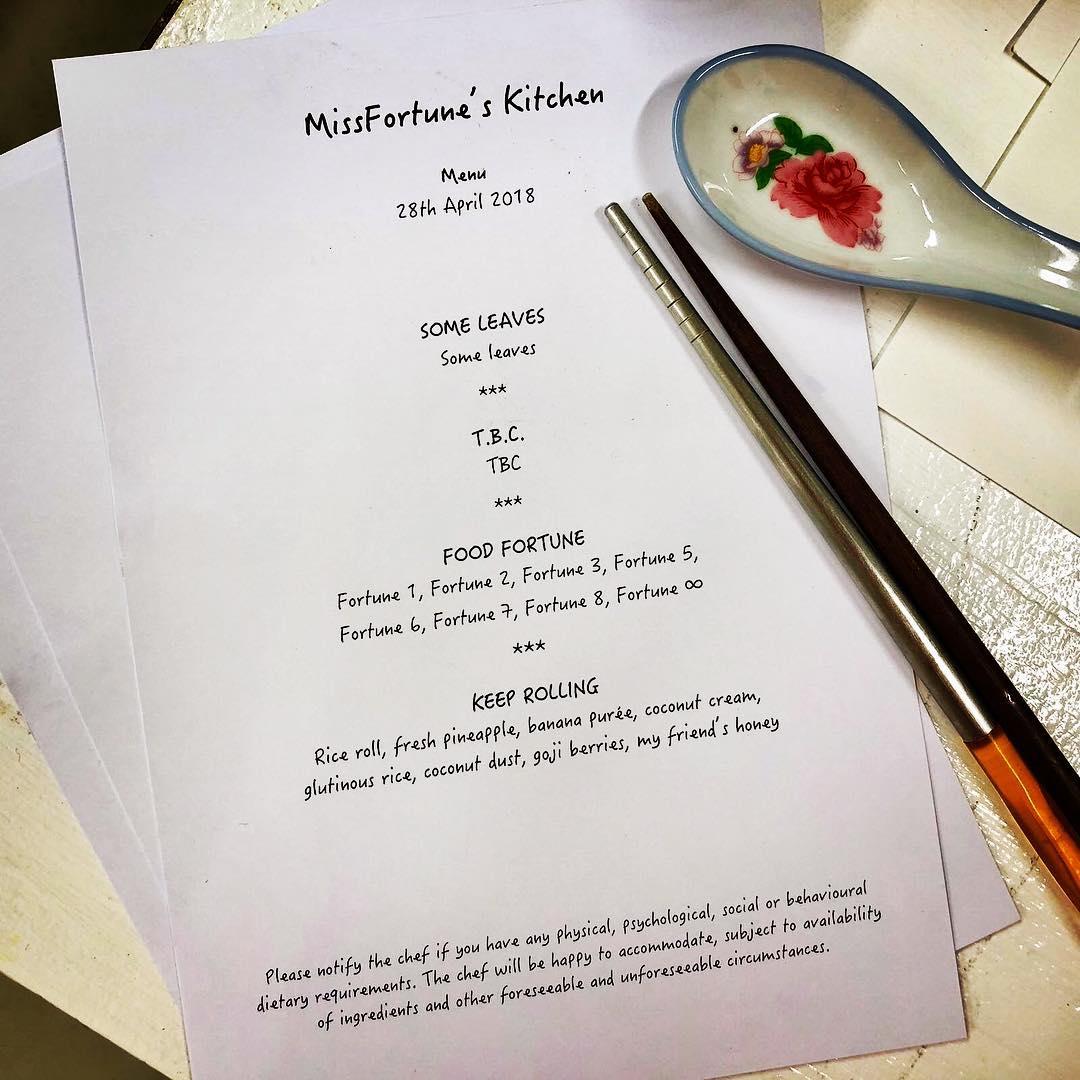 MissFortune's Kitchen
Menu
28th April 2018
SOME LEAVES
Some leaves
***
T.B.C.
TBC
***
FOOD FORTUNE
Fortune 1, Fortune 2, Fortune 3, Fortune 5,
Fortune 6, Fortune 7, Fortune 8, Fortune ∞
***
KEEP ROLLING
Rice roll, fresh pineapple, banana purée, coconut cream,
glutinous rice, coconut dust, goji berries, my friend's honey
Please notify the chef if you have any physical, psychological, social or behavioural
dietary requirements. The chef will be happy to accommodate, subject to availability
of ingredients and other foreseeable and unforeseeable circumstances.